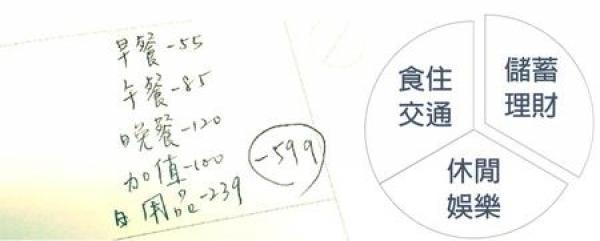 早餐-55
午餐-85
晚餐-120
加值-100
日用品-239
-599
食住
交通
儲蓄
理財
休閒
娛樂